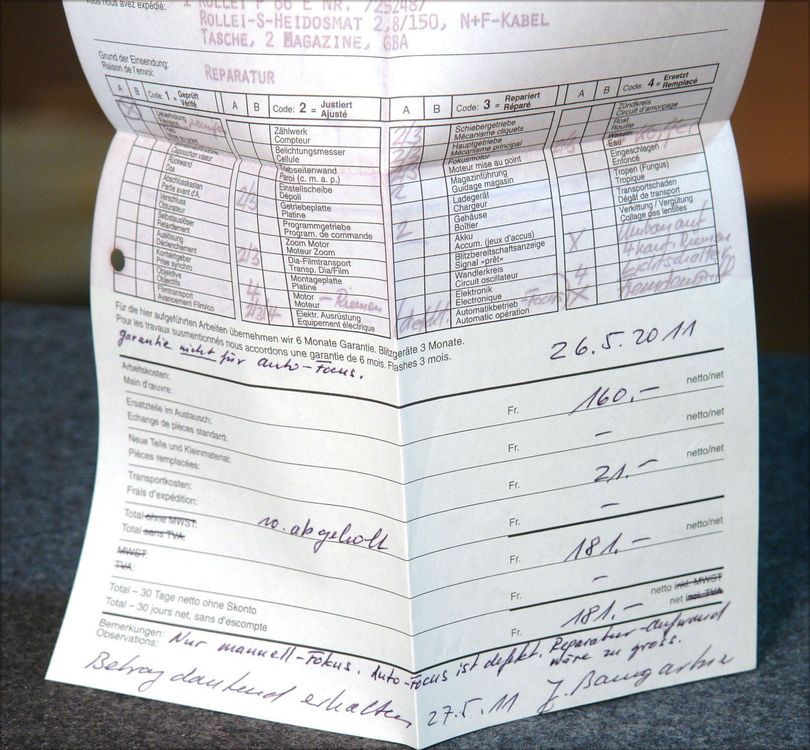 ous nous avez expédié:
1 ROLLEI P 66 E NR. 7252487
ROLLEI-S-HEIDOSMAT 2,8/150, N+F-KABEL
TASCHE, 2 MAGAZINE, GBA
Grund der Einsendung:
Raison de l'envoi:
REPARATUR
A B Code: 1 = Geprüft Vérifié
A B Code: 2 = Justiert Ajusté
A B Code: 3 = Repariert Réparé
A B Code: 4 = Ersetzt Remplacé
Zählwerk
Compteur
Belichtungsmesser
Cellule
Parol (c. m. a. p.)
Einstellscheibe
Dépoli
Getriebeplatte
Platine
Programmgetriebe
Program. de commande
Zoom Motor
Moteur Zoom
Dia-Filmtransport
Transp. Dia/Film
Montageplatte
Platine
Motor - Riemen
Moteur
Elektr. Ausrüstung
Equipement électrique
Rückwand
Dos
Abschlusskasten
Partie avant d'A.
Verschluss
Obturateur
Selbstauslöser
Retardement
Auslösung
Déclenchement
Kontaktgeber
Prise synchro
Objektive
Objectifs
Filmtransport
Avancement Film/co
2/3
2/3
4
2/3/4
Schiebergetriebe
Mécanisme cliquets
Hauptgetriebe
Mécanisme principal
Fokusmotor
Moteur mise au point
Magazinführung
Guidage magasin
Ladegerät
Chargeur
Gehäuse
Boîtier
Akku
Accum. (jeux d'accus)
Blitzbereitschaftsanzeige
Signal «prêt»
Wandlerkreis
Circuit oscillateur
Elektronik
Electronique
Automatikbetrieb - Focus
Automatic opération
2/3
2
defekt.
Zündkreis
Circuit d'amorçage
Rost
Rouille
Wasser
Eau
Eingeschlagen
Enfoncé
Tropen (Fungus)
Tropique
Transportschaden
Dégât de transport
Verkittung / Vergütung
Collage des lentilles
X Umbau auf
4 kant. Riemen
4
X
Für die hier aufgeführten Arbeiten übernehmen wir 6 Monate Garantie, Blitzgeräte 3 Monate.
Pour les travaux susmentionnés nous accordons une garantie de 6 mois, Flashes 3 mois.
garantie nicht für auto-Focus.
26.5.2011
Arbeitskosten:
Main d'œuvre:
Fr. 160.- netto/net
Ersatzteile im Austausch:
Echange de pièces standard:
Fr. - netto/net
Neue Teile und Kleinmaterial:
Pièces remplacées:
Fr. 21.- netto/net
Transportkosten:
Frais d'expédition:
w. abgeholt
Fr. -
Total ohne MWST:
Total sans TVA
Fr. 181.- netto/net
MWST:
TVA:
Fr. -
Total – 30 Tage netto ohne Skonto
Total – 30 jours net, sans d'escompte
Fr. 181.-
netto inkl. MWST
net incl. TVA
Bemerkungen:
Observations:
Nur manuell-Fokus. Auto-Focus ist defekt. Reparatur-aufwand
wäre zu gross.
Betrag dankend erhalten 27.5.11 J. Baumgartner